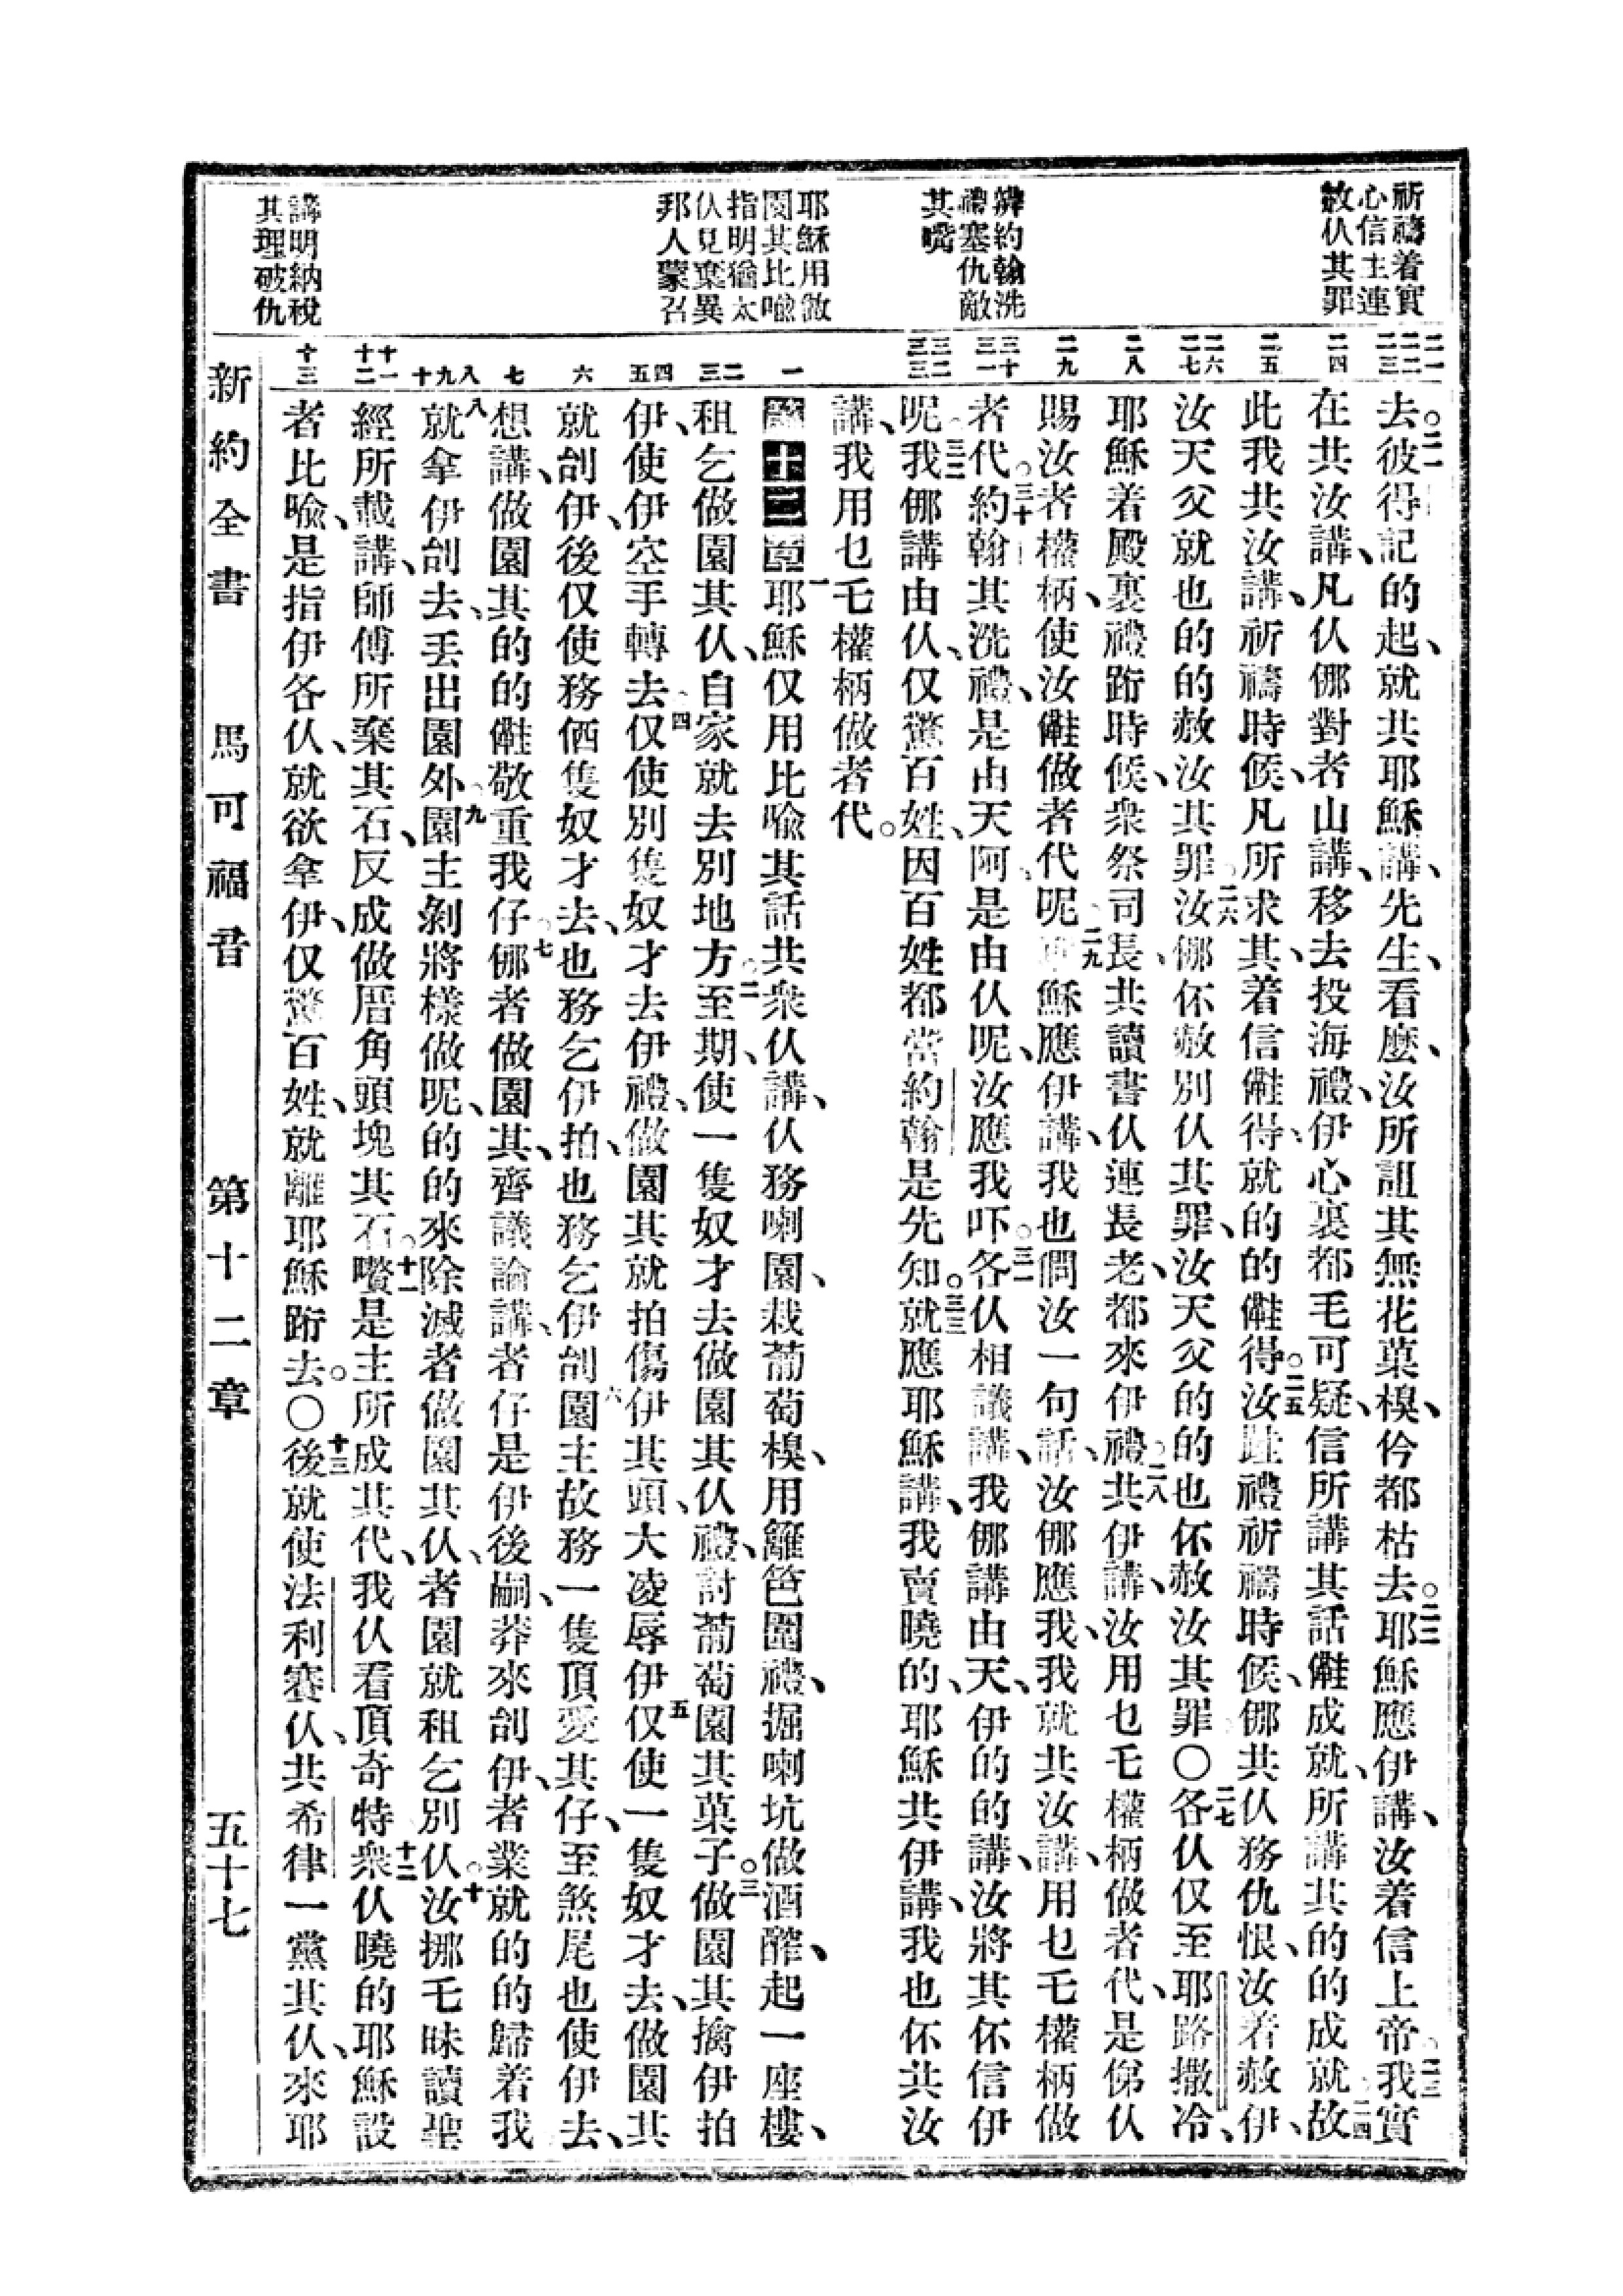 祈禱着實
心信主連
敇仈其罪
辨約翰洗
禮塞仇敵
其嘴
耶穌用做
園其比喻
指明猶太
仈見棄異
邦人蒙召
講明納稅
其理破仇
二一 二二 二三
二四
二五
二六 二七
二八
二九
三十 三一
三二 三三
一
二 三
四 五
六
七
八 九 十
十一 十二
十三
去。二一彼得記的起、就共耶穌講、先生、看麼、汝所詛其無花菓模、仱都枯去。二二耶穌應伊講、汝着信上帝。二三我實
在共汝講、凡仈傩對者山講、移去投海禮、伊心裏都毛可疑、信所講其話、儺成就、所講其的的成就。二四故
此我共汝講、祈禱時候、凡所求其、着信儺得、就的的儺得。二五汝跬禮祈禱時候、傩共仈務仇恨、汝着赦伊、
汝天父就也的的赦汝其罪。二六汝傩伓赦別仈其罪、汝天父的的也伓赦汝其罪○二七各仈仅至耶路撒冷、
耶穌着殿裏禮跴時候、衆祭司長、共讀書仈連長老、都來伊禮。二八共伊講、汝用乜乇權柄做者代、是俤仈
賜汝者權柄、使汝儺做者代呢。二九耶穌應伊講、我也問汝一句話、汝傩應我、我就共汝講、用乜乇權柄做
者代。三十約翰其洗禮、是由天阿、是由仈呢、汝應我吓。三一各仈相議講、我傩講由天、伊的的講、汝將其伓信伊
呢。三二我傩講由仈、仅驚百姓、因百姓都當約翰是先知。三三就應耶穌講、我賣曉的、耶穌共伊講、我也伓共汝
講、我用乜乇權柄做者代。
第十二章 一耶穌仅用比喻其話共衆仈講、仈務喇園、栽葡萄模、用籬笆圍禮、掘喇坑做酒醡、起一座樓、
租乞做園其仈、自家就去別地方。二至期、使一隻奴才去做園其仈禮、討葡萄園其菓子。三做園其擒伊拍
伊、使伊空手轉去。四仅使別隻奴才去伊禮、做園其就拍傷伊其頭、大凌辱伊。五仅使一隻奴才去、做園其
就刣伊、後仅使務価隻奴才去、也務乞伊拍、也務乞伊刣。六園主故務一隻頂愛其仔、至煞尾也使伊去、
想講、做園其的的儺敬重我仔。七傩者做園其、齊議論講、者仔是伊後嗣、莽來刣伊、者業就的的歸着我。
八就拿伊刣去、丟出園外。九園主剝將樣做呢、的的來除滅者做園其仈、者園就租乞別仈。十汝挪乇昧讀聖
經所載講、師傅所棄其石、反成做厝角頭塊其石嚽。十一是主所成其代、我仈看頂奇特。十二衆仈曉的耶穌設
者比喻、是指伊各仈、就欲拿伊、仅驚百姓、就離耶穌跴去。○十三後就使法利賽仈、共希律一黨其仈、來耶
新約全書 馬可福音 第十二章 五十七